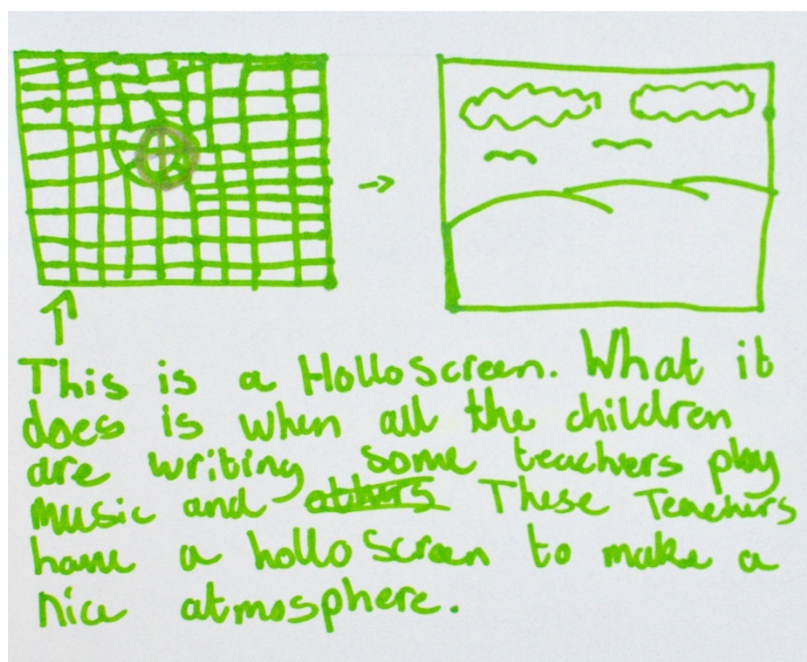 This is a HolloScreen. What it
does is when all the children
are writing some teachers play
music and others These Teachers
have a holloScreen to make a
nice atmosphere.